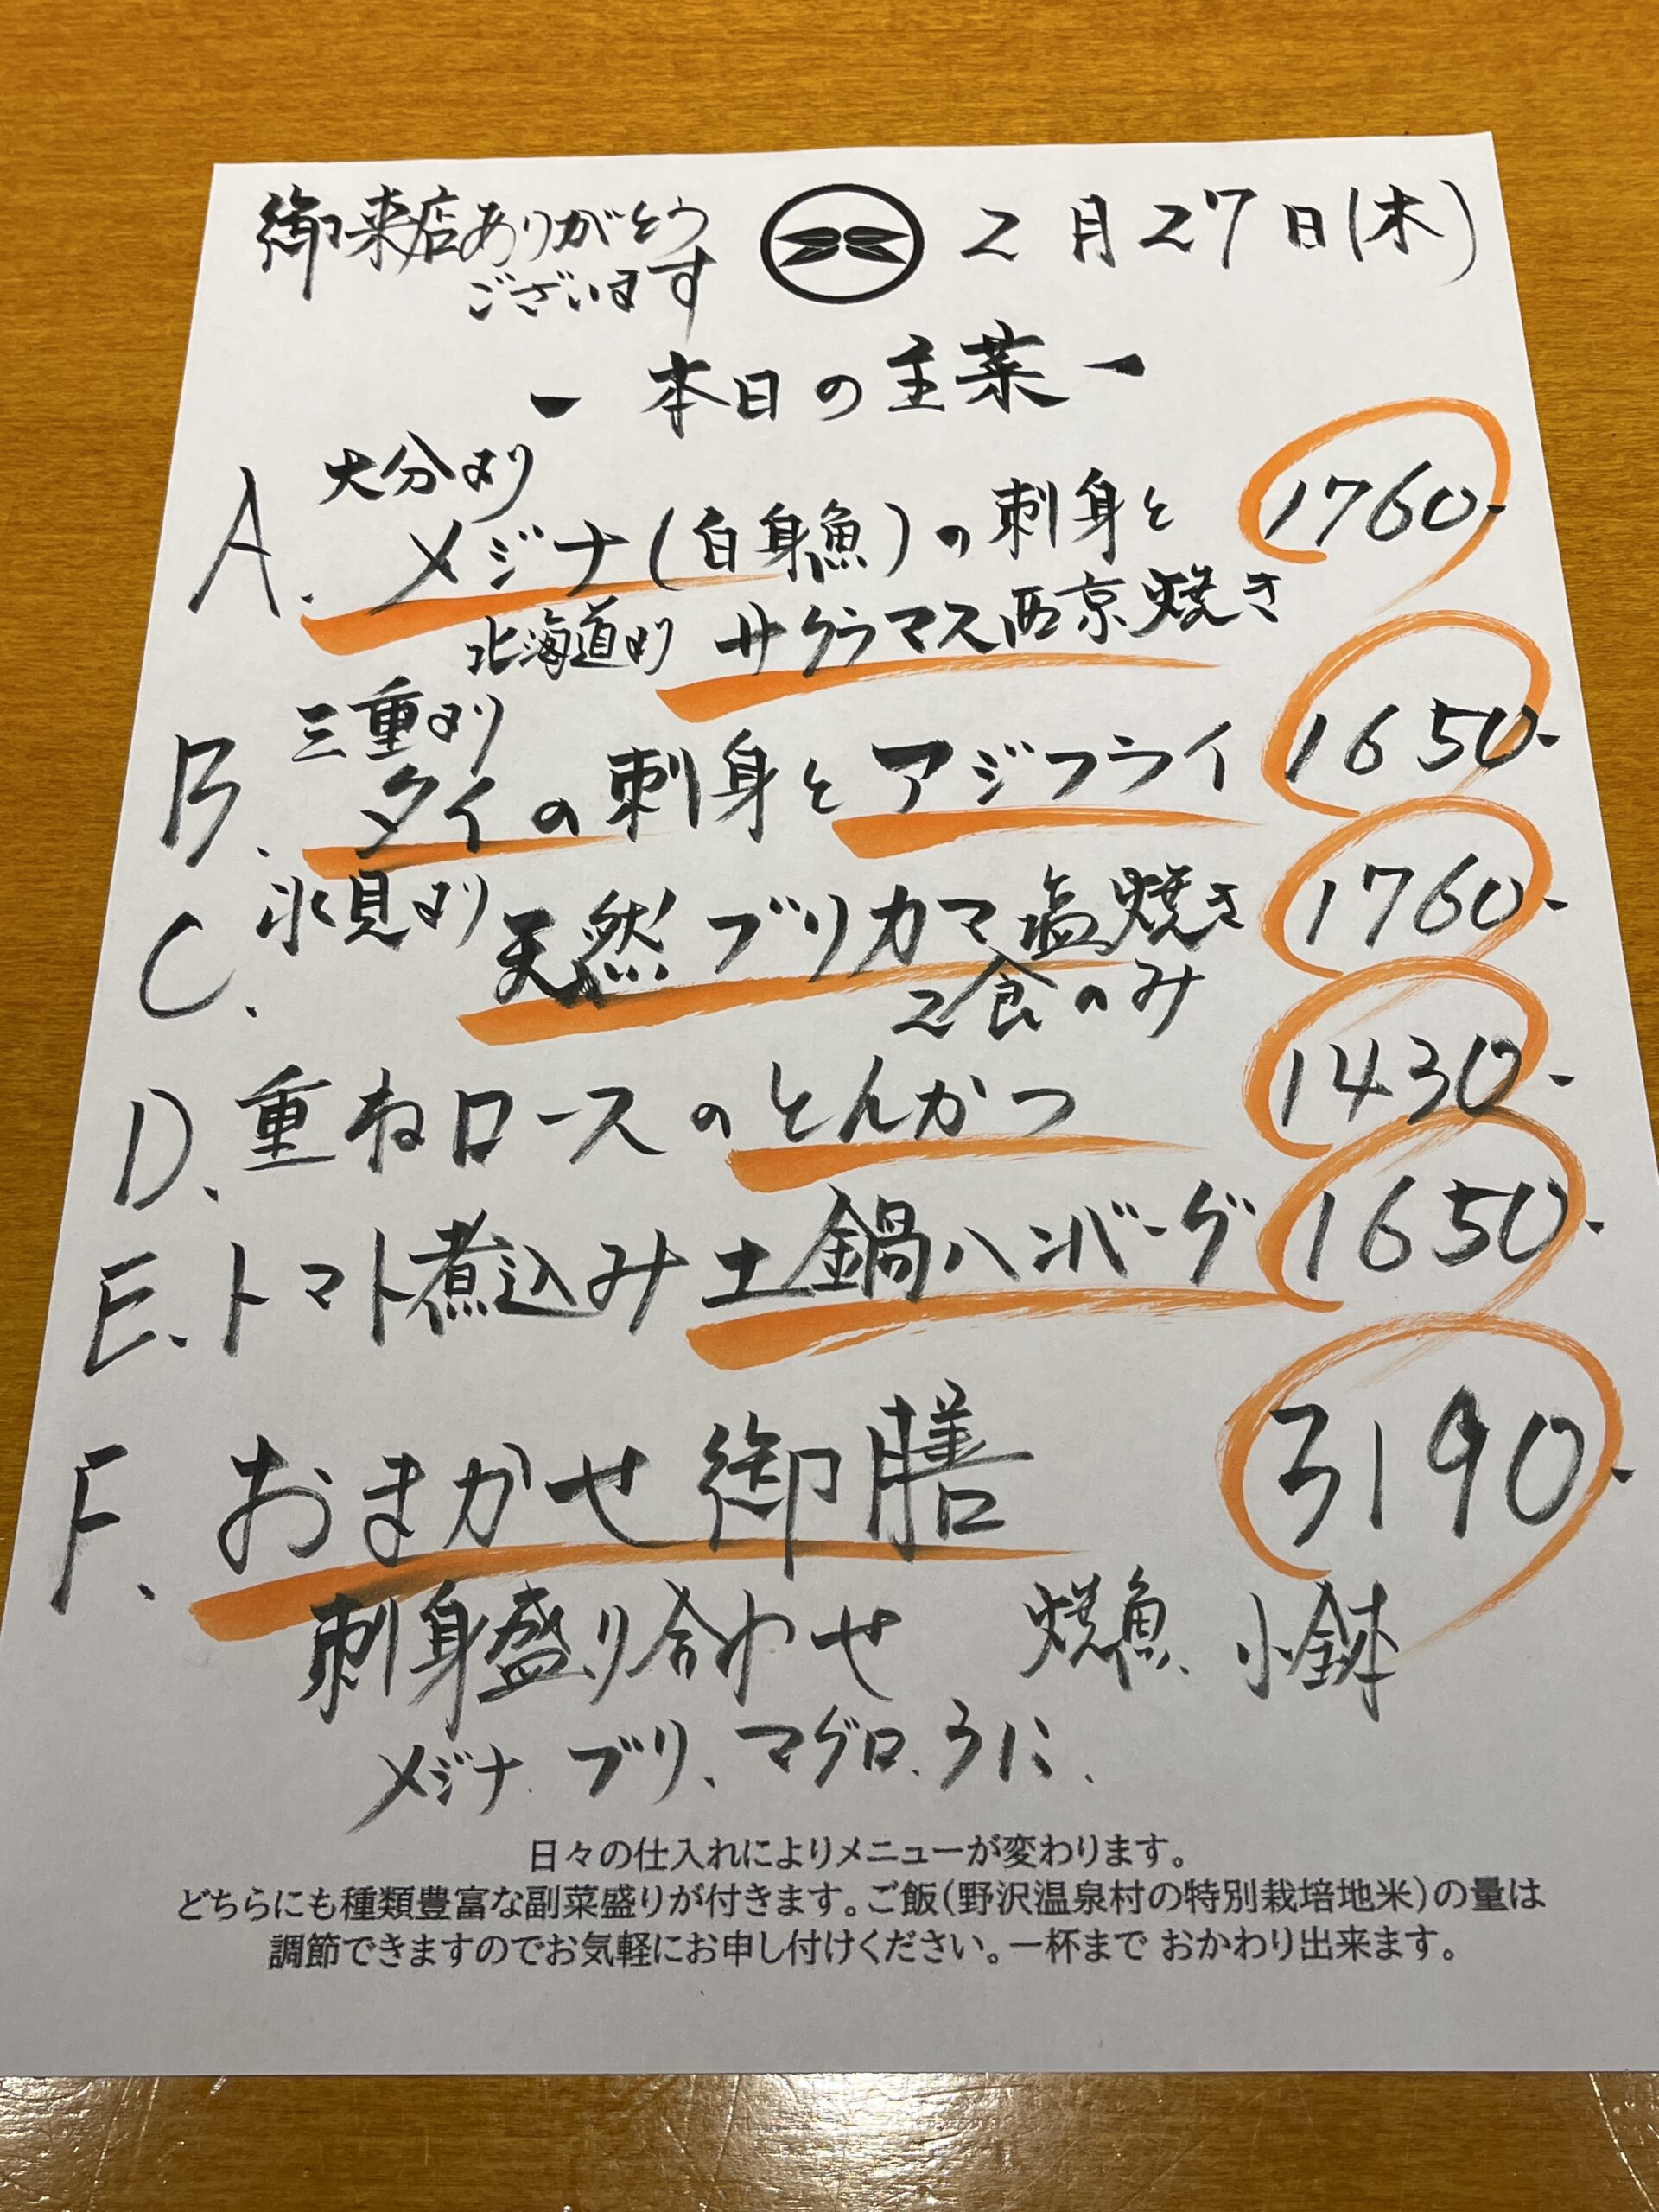 御来店ありがとう
ございます
2月27日(木)
ー本日の主菜ー
A. 大分より
メジナ(白身魚)の刺身と 1760-
北海道より サクラマス西京焼き
B. 三重より
タイの刺身とアジフライ 1650-
C. 氷見より 天然ブリカマ塩焼き 1760-
2食のみ
D. 重ねロースのとんかつ 1430-
E. トマト煮込み土鍋ハンバーグ 1650-
F. おまかせ御膳 3190-
刺身盛り合わせ 焼魚、小鉢
メジナ、ブリ、マグロ、うに、
日々の仕入れによりメニューが変わります。
どちらにも種類豊富な副菜盛りが付きます。ご飯(野沢温泉村の特別栽培地米)の量は
調節できますのでお気軽にお申し付けください。一杯まで おかわり出来ます。